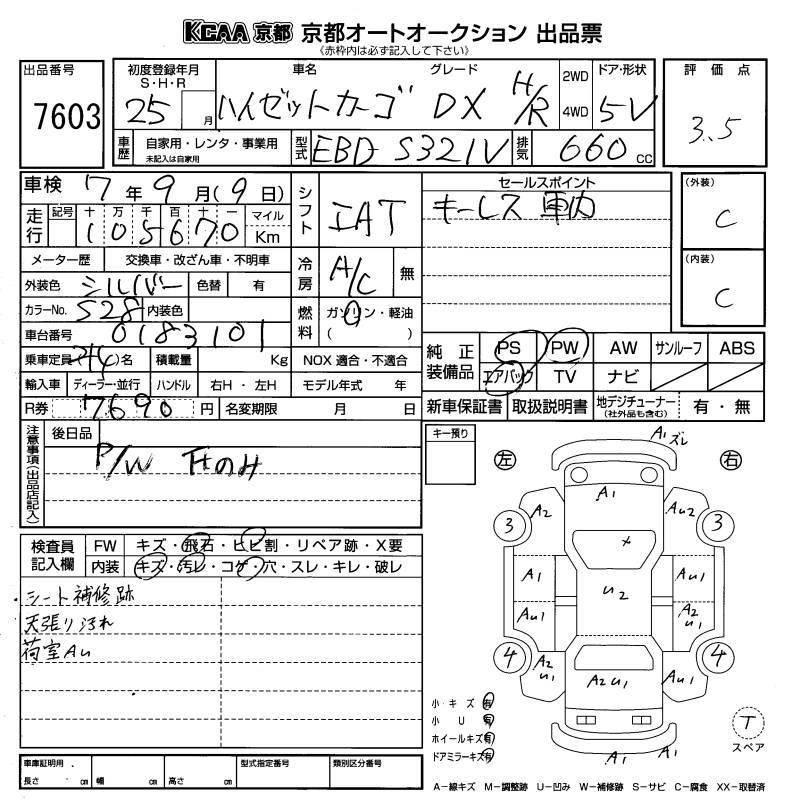 KCAA 京都 京都オートオークション 出品票
《赤枠内は必ず記入して下さい》
出品番号
7603
初度登録年月
S・H・R
25 月
車名
ハイゼットカーゴ
グレード
DX H/R
2WD
4WD
ドア・形状
5V
評価点
3.5
車歴
自家用・レンタ・事業用
未記入は自家用
型式
EBD-S321V
排気
660 CC
車検 7年9月(9日)
走行
記号 十 万 千 百 十 一 マイル
105670 Km
メーター歴 交換車・改ざん車・不明車
外装色 シルバー 色替 有
カラーNo. S28 内装色
車台番号 0183101
乗車定員 4名 積載量 Kg
輸入車 ディーラー・並行 ハンドル 右H・左H
R券 7690 円 名変期限 月 日
シフト IAT
冷房 A/C 無
燃料 ガソリン・軽油
( )
NOX 適合・不適合
モデル年式 年
セールスポイント
キーレス 車内
(外装)
C
(内装)
C
純正装備品
PS PW AW サンルーフ ABS
エアバック TV ナビ
新車保証書 取扱説明書 地デジチューナー(社外品も含む) 有・無
注意事項(出品店記入)
後日品
P/W Fのみ
検査員記入欄
FW キズ・飛石・ヒビ割・リペア跡・X要
内装 キズ・汚レ・コゲ・穴・スレ・キレ・破レ
・シート補修跡
天張り汚れ
荷室AU
キー預り
左
右
A1ズレ
A1
A2
AU2
3
3
×
A1
AU1
U2
AU1
A2
U1
4
4
A2
U1
A2U1
AU1
A1
A1
小・キズ 有
小 U 有
ホイールキズ 有
ドアミラーキズ 有
T
スペア
車庫証明用
長さ cm 幅 cm 高さ cm
型式指定番号
類別区分番号
A-線キズ M-調整跡 U-凹み W-補修跡 S-サビ C-腐食 XX-取替済